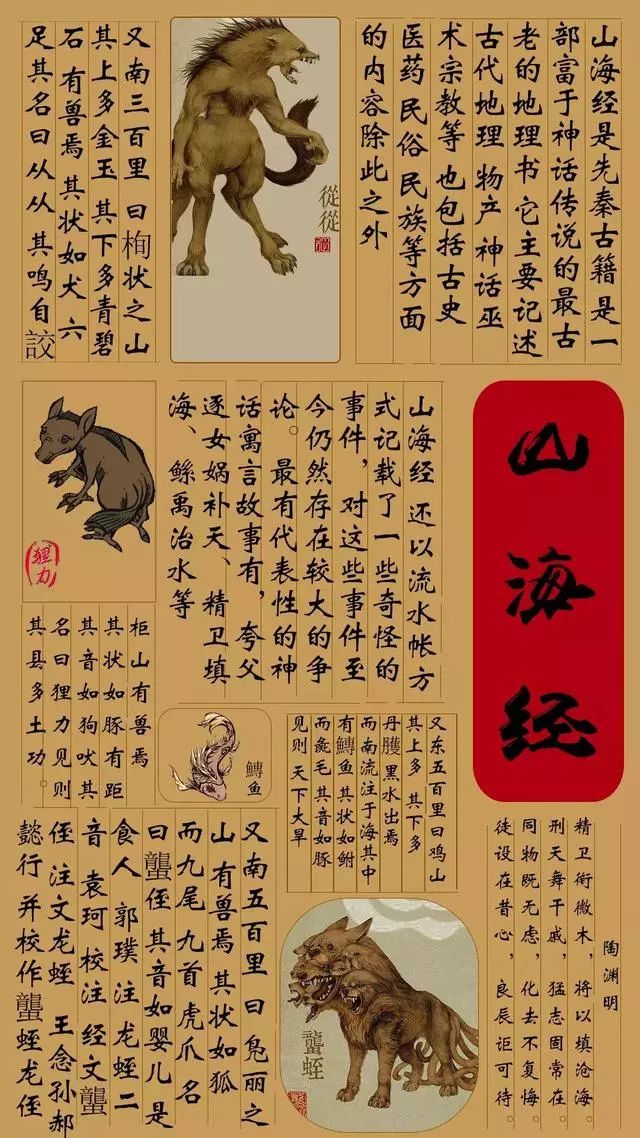 山海经是先秦古籍是一
部富于神话传说的最古
老的地理书 它主要记述
古代地理 物产 神话 巫
术宗教等 也包括古史
医药 民俗 民族等方面
的内容除此之外
從從
又南三百里 曰栒状之山
其上多金玉 其下多青碧
石 有兽焉 其状如犬 六
足其名曰从从 其鸣自詨
山海经
山海经 还以流水帐方
式记载了一些奇怪的
事件，对这些事件至
今仍然存在较大的争
论。最有代表性的神
话寓言故事有，夸父
逐女娲补天、精卫填
海、鲧禹治水等
狸力
柜山有兽焉
其状如豚有距
其音如狗吠其
名曰狸力见则
其县多土功。
鱄鱼
又东五百里曰鸡山
其上多 其下多
丹雘 黑水出焉
而南流注于海其中
有鱄鱼 其状如鲋
而彘毛 其音如豚
见则 天下大旱
陶渊明
精卫衔微木，将以填沧海。
刑天舞干戚，猛志固常在。
同物既无虑，化去不复悔。
徒设在昔心，良辰讵可待。
蠪蛭
又南五百里曰 凫丽之
山有兽焉 其状如狐
而九尾 九首 虎爪 名
曰蠪侄 其音如婴儿是
食人 郭璞 注 龙蛭 二
音 袁珂 校注 经文蠪
侄 注文龙蛭 王念孙郝
懿行 并校作蠪蛭龙侄